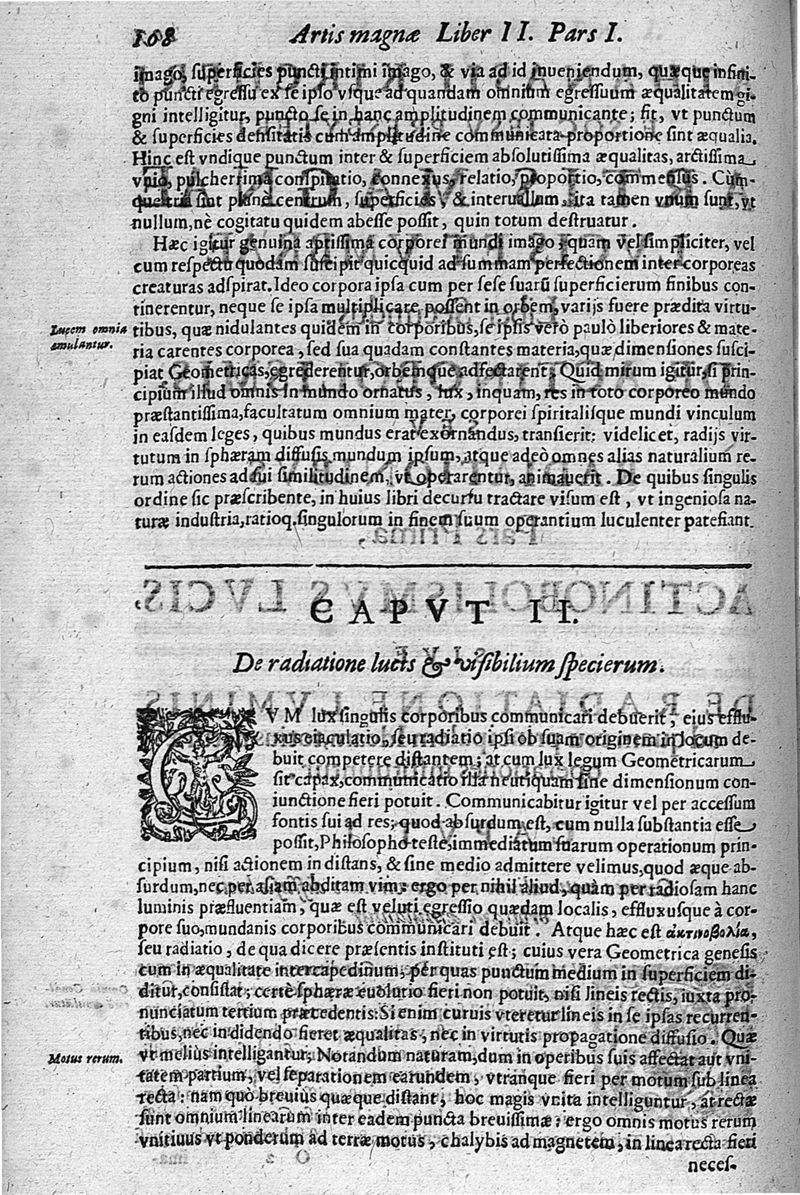 168 Artis magnæ Liber II. Pars I.
imago, superficies puncti intimi imago, & via ad id inueniendum, quæque infini-
to puncti egressu ex se ipso vsque ad quandam omnium egressuum æqualitatem gi-
gni intelligitur, puncto se in hanc amplitudinem communicante; fit, vt punctum
& superficies densitatis cum amplitudine communicata proportione sint æqualia.
Hinc est vndique punctum inter & superficiem absolutissima æqualitas, arctissima
vnio, pulcherrima conspiratio, connexus, relatio, proportio, commensus. Cùm-
que tria sint planè centrum, superficies, & interuallum, ita tamen vnum sunt, vt
nullum, nè cogitatu quidem abesse possit, quin totum destruatur.
Hæc igitur genuina aptissima corporei mundi imago, quam vel simpliciter, vel
cum respectu quodam suscipit quicquid ad summam perfectionem inter corporeas
creaturas adspirat. Ideo corpora ipsa cum per sese suarū superficierum finibus con-
tinerentur, neque se ipsa multiplicare possent in orbem, varijs fuere prædita virtu-
Lucem omnia
æmulantur.
tibus, quæ nidulantes quidem in corporibus, se ipsis verò paulò liberiores & mate-
ria carentes corporea, sed sua quadam constantes materia, quæ dimensiones susci-
piat Geometricas, egrederentur, orbemque adfectarent; Quid mirum igitur, si prin-
cipium illud omnis in mundo ornatus, lux, inquam, res in toto corporeo mundo
præstantissima, facultatum omnium mater, corporei spiritalisque mundi vinculum
in easdem leges, quibus mundus erat exornandus, transierit: videlicet, radijs vir-
tutum in sphæram diffusis mundum ipsum, atque adeò omnes alias naturalium re-
rum actiones ad sui similitudinem, vt operarentur, animauerit. De quibus singulis
ordine sic præscribente, in huius libri decursu tractare visum est, vt ingeniosa na-
turæ industria, ratioq. singulorum in finem suum operantium luculenter patefiant.
CAPVT II.
De radiatione lucis & visibilium specierum.
CVM lux singulis corporibus communicari debuerit, eius efflu-
xus eiaculatio, seu radiatio ipsi ob suam originem in locum de-
buit competere distantem; at cum lux legum Geometricarum
sit capax, communicatio illa neutiquam sine dimensionum con-
iunctione fieri potuit. Communicabitur igitur vel per accessum
fontis sui ad res; quod absurdum est, cum nulla substantia esse
possit, Philosopho teste, immediatum suarum operationum prin-
cipium, nisi actionem in distans, & sine medio admittere velimus, quod æque ab-
surdum, nec per aliam abditam vim; ergo per nihil aliud, quàm per radiosam hanc
luminis præfluentiam, quæ est veluti egressio quædam localis, effluxusque à cor-
pore suo, mundanis corporibus communicari debuit. Atque hæc est ἀκτινοβολία,
seu radiatio, de qua dicere præsentis instituti est; cuius vera Geometrica genesis
cum in æqualitate intercapedinum, per quas punctum medium in superficiem di-
ditur, consistat; certè sphæræ euolutio fieri non potuit, nisi lineis rectis, iuxta pro-
nunciatum tertium præcedentis: Si enim curuis vteretur lineis in se ipsas recurren-
tibus, nec in didendo fieret æqualitas, nec in virtutis propagatione diffusio. Quæ
Motus rerum.
vt melius intelligantur; Notandum naturam, dum in operibus suis affectat aut vni-
tatem partium, vel separationem earundem, vtranque fieri per motum sub linea
recta: nam quò breuius quæque distant, hoc magis vnita intelliguntur, at rectæ
sunt omnium linearum inter eadem puncta breuissimæ: ergo omnis motus rerum
vnitiuus vt ponderum ad terræ motus, chalybis ad magnetem, in linea recta fieri
neces-